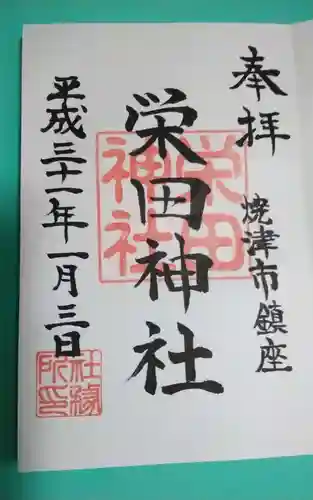 奉拝
焼津市鎮座
栄田神社
栄田
神社
平成三十一年一月三日